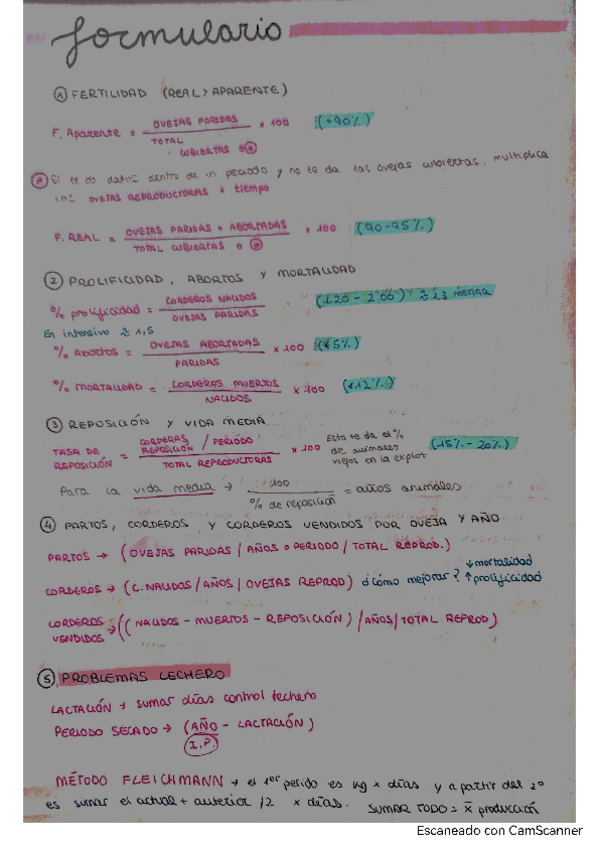 formulario
① FERTILIDAD (REAL > APARENTE)
F. Aparente = OVEJAS PARIDAS / TOTAL CUBIERTAS o Ⓐ × 100 (+90%)
Ⓐ Si te da datos dentro de un periodo y no te da las ovejas cubiertas, multiplica
las OVEJAS REPRODUCTORAS * tiempo
F. REAL = OVEJAS PARIDAS + ABORTADAS / TOTAL CUBIERTAS o Ⓐ × 100 (90-95%)
② PROLIFICIDAD, ABORTOS Y MORTALIDAD
% prolificidad = CORDEROS NACIDOS / OVEJAS PARIDAS (1.20 - 2.00) ≈ 1,3 merina
En intensivo ≈ 1,5
% Abortos = OVEJAS ABORTADAS / PARIDAS × 100 (<5%)
% MORTALIDAD = CORDEROS MUERTOS / NACIDOS × 100 (<12%)
③ REPOSICIÓN Y VIDA MEDIA
TASA DE REPOSICIÓN = CORDERAS REPOSICIÓN / PERIODO / TOTAL REPRODUCTORAS × 100 Esto te da el % de animales viejos en la explot (15% - 20%)
Para la vida media → 100 / % de reposición = años animales
④ PARTOS, CORDEROS Y CORDEROS VENDIDOS POR OVEJA Y AÑO
PARTOS → (OVEJAS PARIDAS / AÑOS o PERIODO / TOTAL REPROD.)
CORDEROS → (C. NACIDOS / AÑOS / OVEJAS REPROD) ¿Cómo mejorar? ↓mortalidad ↑prolificidad
CORDEROS VENDIDOS → ((NACIDOS - MUERTOS - REPOSICIÓN) / AÑOS / TOTAL REPROD)
⑤ PROBLEMAS LECHERO
LACTACIÓN → sumar días control lechero
PERIODO SECADO → (AÑO - LACTACIÓN)
I.P.
MÉTODO FLEICHMANN → el 1er perido es kg × días y a partir del 2º
es sumar el actual + anterior /2 × días. SUMAR TODO = x̄ producción
Escaneado con CamScanner